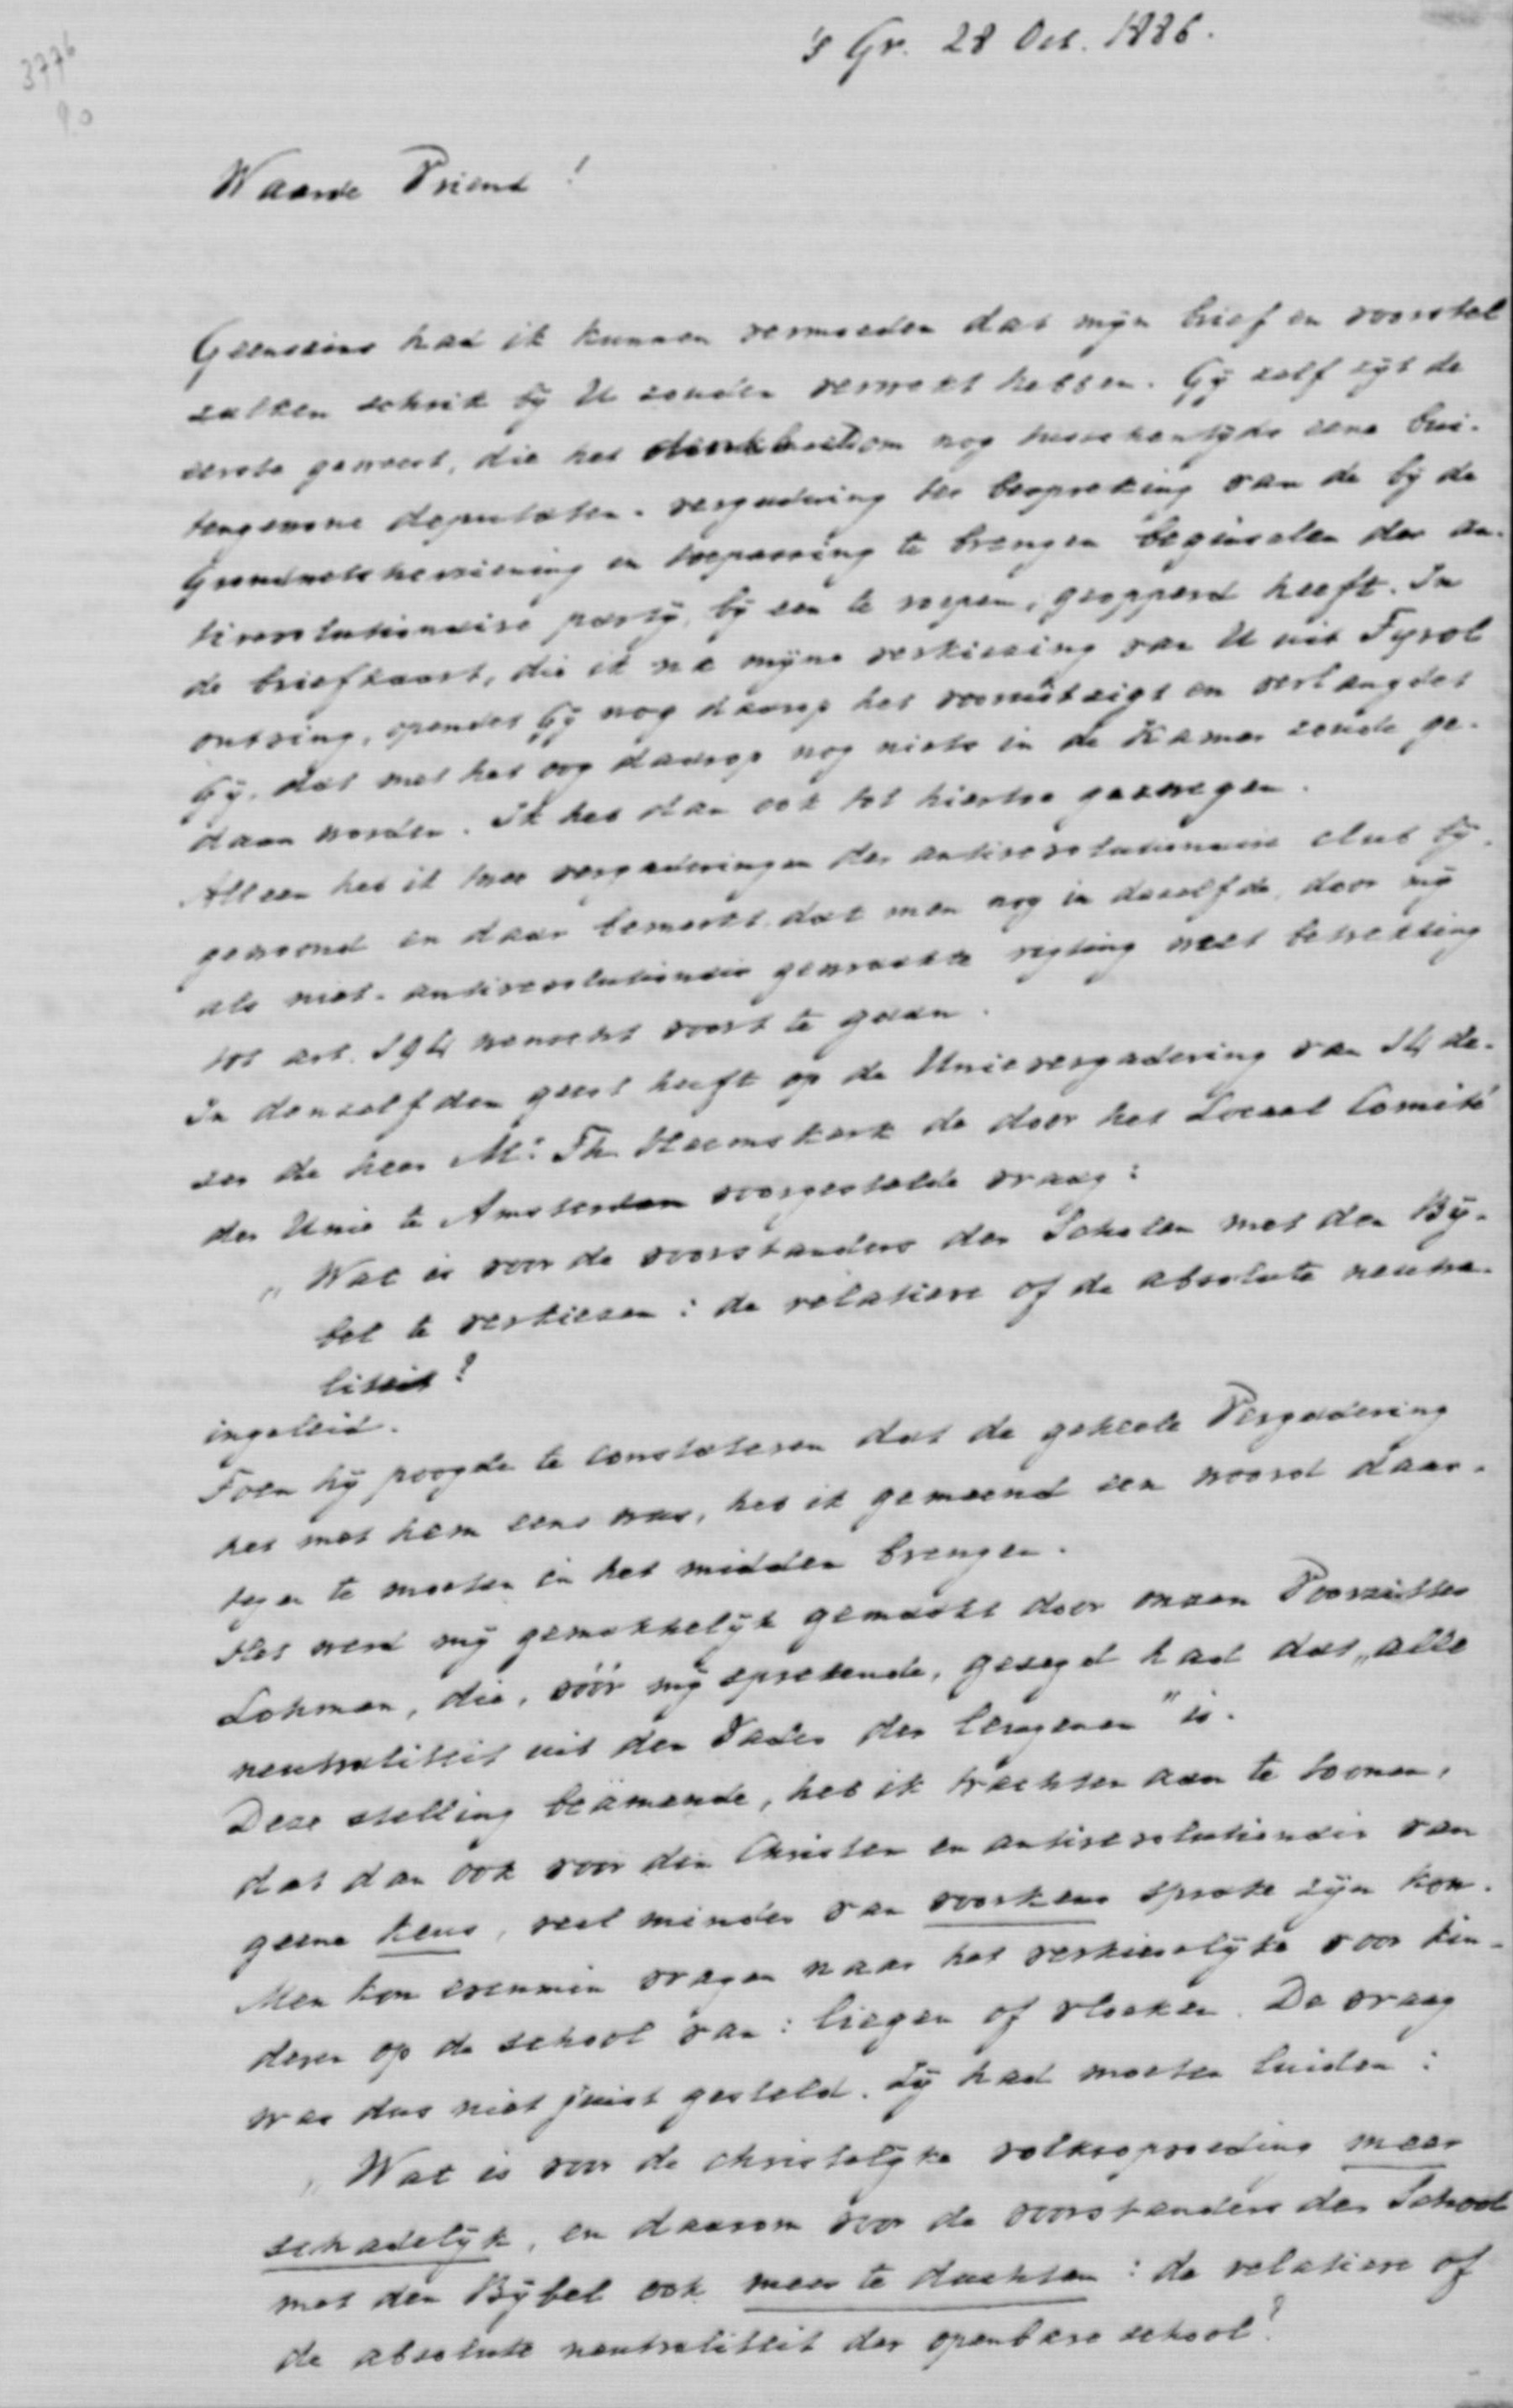 3776
90
's Gr. 28 Oct. 1886.
Waarde Vriend!
Geenszins had ik kunnen vermoeden dat mijn brief en voorstel
zulken schrik bij U zouden verwekt hebben. Gij zelf zijt de
eerste geweest, die het denkbeeld om nog tusschentijds eene bui-
tengewone deputaten-vergadering ter bespreking van de bij de
Grondwetsherziening in toepassing te brengen beginselen der an-
tirevolutionaire partij, bij een te roepen, geopperd heeft. In
de briefkaart, die ik na mijne verkiezing van U uit Tyrol
ontving, opendet Gij nog daarop het vooruitzigt en verlangdet
Gij, dat met het oog daarop nog niets in de Kamer zoude ge-
daan worden. Ik heb dan ook tot hiertoe gezwegen.
Alleen heb ik twee vergaderingen der antirevolutionaire club bij-
gewoond en daar bemerkt dat men nog in dezelfde, door mij
als niet-antirevolutionair gewraakte rigting met betrekking
tot art. 194 wenscht voort te gaan.
In denzelfden geest heeft op de Unievergadering van 14 de-
zer de heer Mr. Th. Heemskerk de door het Locaal Comité
der Unie te Amsterdam voorgestelde vraag:
„Wat is voor de voorstanders der Scholen met den Bij-
bel te verkiezen: de relatieve of de absolute neutra-
liteit?
ingeleid.
Toen hij poogde te constateren dat de geheele Vergadering
het met hem eens was, heb ik gemeend een woord daar-
tegen te moeten in het midden brengen.
Het werd mij gemakkelijk gemaakt door onzen Voorzitter
Lohman, die, vóór mij sprekende, gezegd had dat „alle
neutraliteit uit den Vader der leugenen" is.
Deze stelling beämende, heb ik trachten aan te toonen,
dat dan ook voor den Christen en antirevolutionair van
geene keus, veel minder van voorkeus sprake zijn kon.
Men kon evenmin vragen naar het verkieselijke voor kin-
deren op de school van: liegen of vloeken. De vraag
was dus niet juist gesteld. Zij had moeten luiden:
„Wat is voor de christelijke volksopvoeding meer
schadelijk, en daarom voor de voorstanders der School
met den Bijbel ook meer te duchten: de relatieve of
de absolute neutraliteit der openbare school?